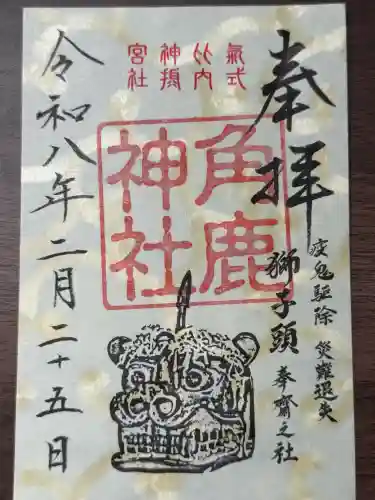 奉拝
疫鬼駆除 災難退失
獅子頭 奉齋之社
氣比神宮
式内摂社
角鹿神社
令和八年二月二十五日